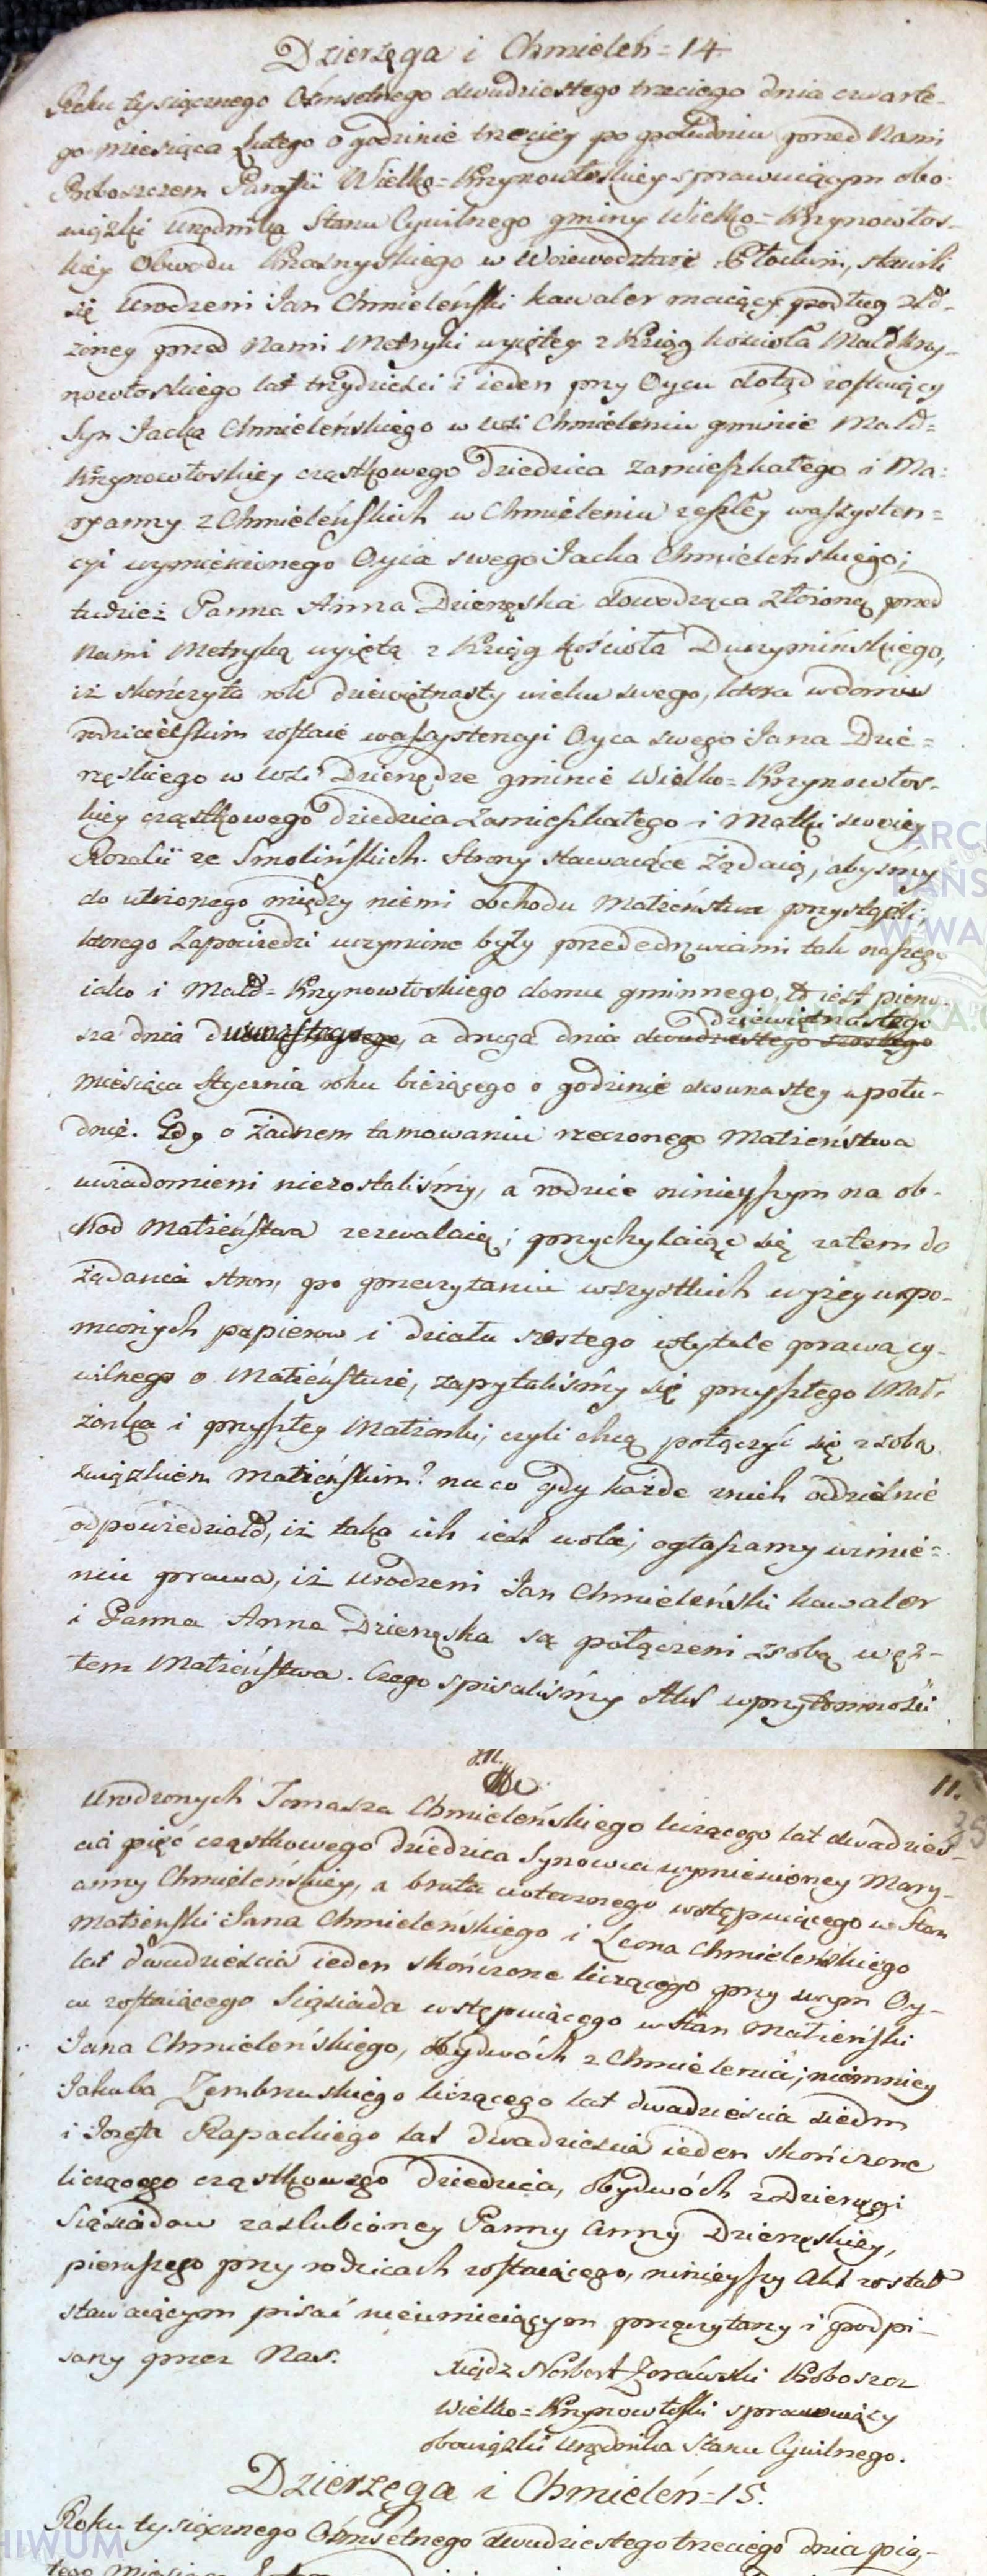 Dzierzęga i Chmieleń = 14.
Roku tysiącznego Ośmsetnego dwudziestego trzeciego dnia czwarte-
go miesiąca Lutego o godzinie trzeciey po południu przed Nami
Proboszczem Parafii Wielko=Krzynowłoskiey sprawuiącym obo-
wiązki Urzędnika Stanu Cywilnego gminy Wielko=Krzynowłos-
kiey Obwodu Przasnyskiego w Woiewodztwie Płockim, stawili
się Urodzeni Jan Chmieleński kawaler maiący podług zło-
żoney przed Nami Metryki wyiętey z Ksiąg kościoła Mało Krzy-
nowłoskiego lat trzydzieści i ieden przy Oycu dotąd zostaiący
Syn Jacka Chmieleńskiego w wsi Chmieleniu gminie Mało=
Krzynowłoskiey cząstkowego Dziedzica zamieszkałego i Ma-
ryanny z Chmieleńskich w Chmieleniu zeszłey w assysten=
cyi wymienionego Oyca swego Jacka Chmieleńskiego;
tudzież Panna Anna Dzierzęska dowodząca złożoną przed
Nami Metryką wyiętą z Ksiąg kościoła Duczymińskiego,
iż skończyła rok dziewiętnasty wieku swego, ktora w domu
rodzicielskim zostaie w assystencyi Oyca swego Jana Dzie=
rzęskiego w wsi Dzierzędze gminie Wielko=Krzynowłos-
kiey cząstkowego Dziedzica Zamieszkałego i Matki swoiey
Rozalii ze Smolińskich. Strony stawaiące żądaią, abyśmy
do ułożonego między niemi obchodu Małżeństwa przystąpili;
ktorego Zapowiedzi uczynione były przede drzwiami tak naszego
iako i Mało=Krzynowłoskiego domu gminnego, to iest pierw-
dziewiętnastego
sza dnia dwunastego, a druga dnia dwudziestego szostego
miesiąca Stycznia roku bieżącego o godzinie dwunastey w połu-
dnie. Gdy o żadnem tamowaniu rzeczonego Małżeństwa
uwiadomieni niezostaliśmy, a rodzice ninieyszym na ob-
chod Małżeństwa zezwalaią; przychylaiąc się zatem do
żądania stron, po przeczytaniu wszystkich wyżey wspo-
mnionych papierow i działu szostego w tytule prawa cy-
wilnego o Małżeństwie, zapytaliśmy się przyszłego Mał-
żonka i przyszłey Małżonki, czyli chcą połączyć się z sobą
związkiem małżeńskim? na co gdy każde z nich oddzielnie
odpowiedziało, iż taka ich iest wola; ogłaszamy w imie=
niu prawa, iż Urodzeni Jan Chmieleński kawaler
i Panna Anna Dzierzęska są połączeni z sobą węz-
łem Małżeństwa. Czego spisaliśmy Akt w przytomności
11.
Urodzonych Tomasza Chmieleńskiego liczącego lat dwadzieś-
cia pięć cząstkowego Dziedzica Synowca wymienioney Mary-
anny Chmieleńskiey, a brata ciotecznego wstępuiącego w Stan
małżeński Jana Chmieleńskiego i Leona Chmieleńskiego
lat dwadzieścia ieden skończone liczącego przy swym Oy-
cu zostaiącego Sąsiada wstępuiącego w stan małżeński
Jana Chmieleńskiego, obydwóch z Chmielenia; niemniey
Jakuba Zembrzuskiego liczącego lat dwadzieścia siedm
i Jozefa Rapackiego lat dwadzieścia ieden skończone
liczącego cząstkowego Dziedzica, obydwóch z Dzierzęgi
Sąsiadow zaslubioney Panny Anny Dzierzęskiey,
pierwszego przy rodzicach zostaiącego, ninieyszy Akt został
stawaiącym pisać nieumieiącym przeczytany i podpi-
sany przez Nas.
Xiądz Norbert Zorawski Proboszcz
Wielko=Krzynowłoski sprawuiący
obowiązki Urzędnika Stanu Cywilnego.
Dzierzęga i Chmieleń = 15.
Roku tysiącznego Ośmsetnego dwudziestego trzeciego dnia pią-